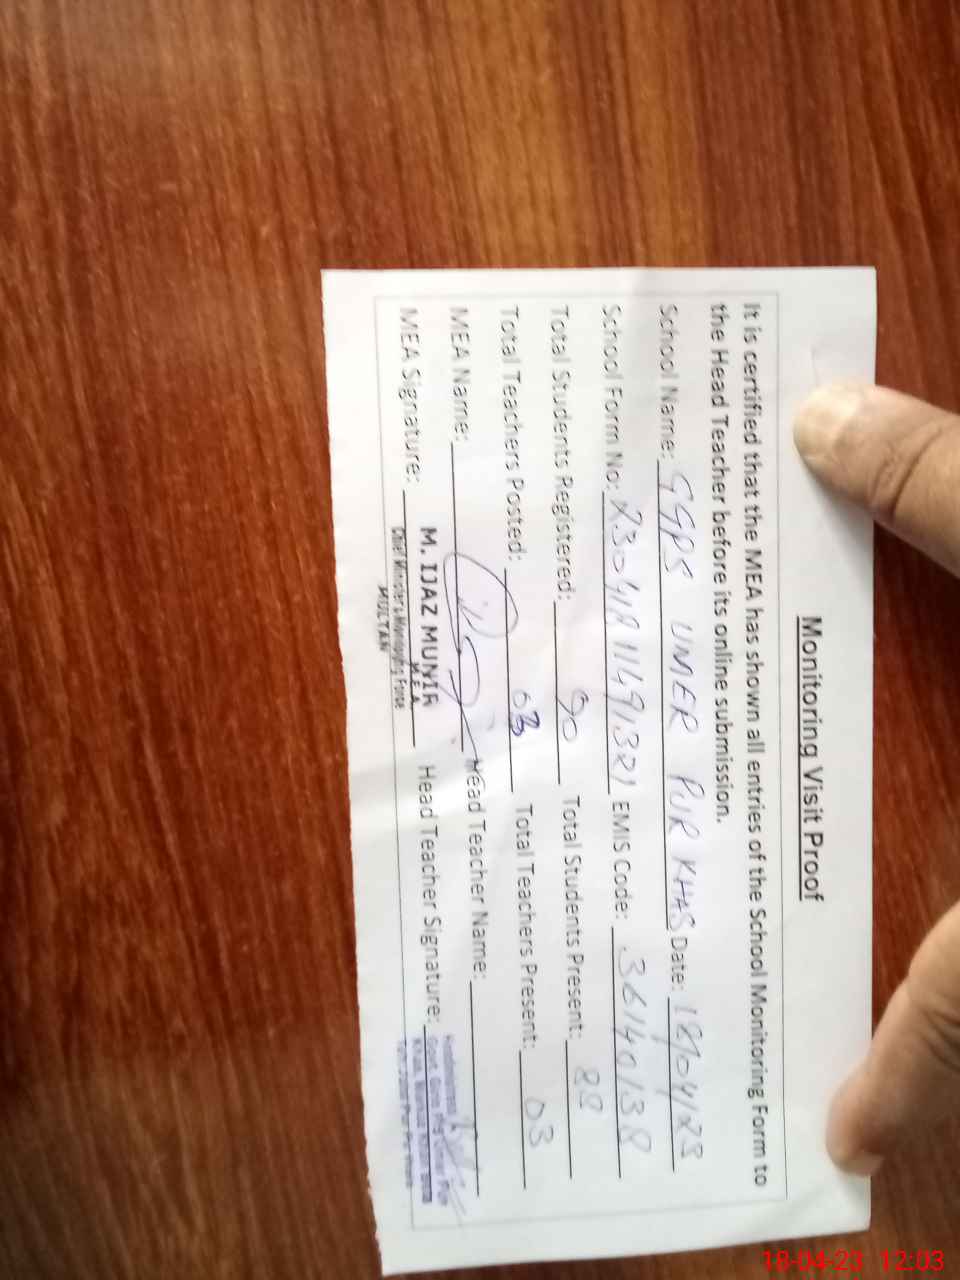 Monitoring Visit Proof
It is certified that the MEA has shown all entries of the School Monitoring Form to
the Head Teacher before its online submission.
School Name: GGPS UMER PUR KHAS Date: 18/04/23
School Form No: EMIS Code: 36140138
Total Students Registered: 90 Total Students Present: 88
Total Teachers Posted: 03 Total Teachers Present: 03
MEA Name: Head Teacher Name:
MEA Signature: Head Teacher Signature:
M. IJAZ MUNIR
M.E.A
Chief Minister's Monitoring Force
MULTAN
18-04-23 12:03